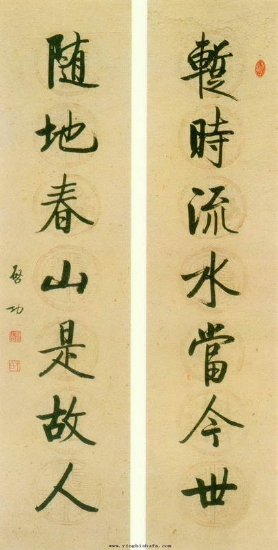 暫時流水當今世
随地春山是故人
啓功
www.yingbishufa.com